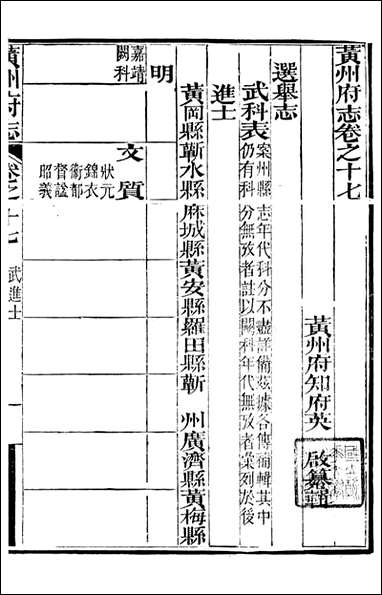 黃州府志卷之十七
黃州府知府英 啟纂輯
選舉志
武科表 案州縣志年代科分不盡詳備茲據各傳補輯其中
仍有科分無攷者註以闕科年代無攷者彙列於後
進士
黃岡縣 蘄水縣 麻城縣 黃安縣 羅田縣 蘄 州 廣濟縣 黃梅縣
明
嘉靖
闕科
文質
狀元
錦衣
衞都
督諡
昭義
黃州府志
卷之十七
武進士